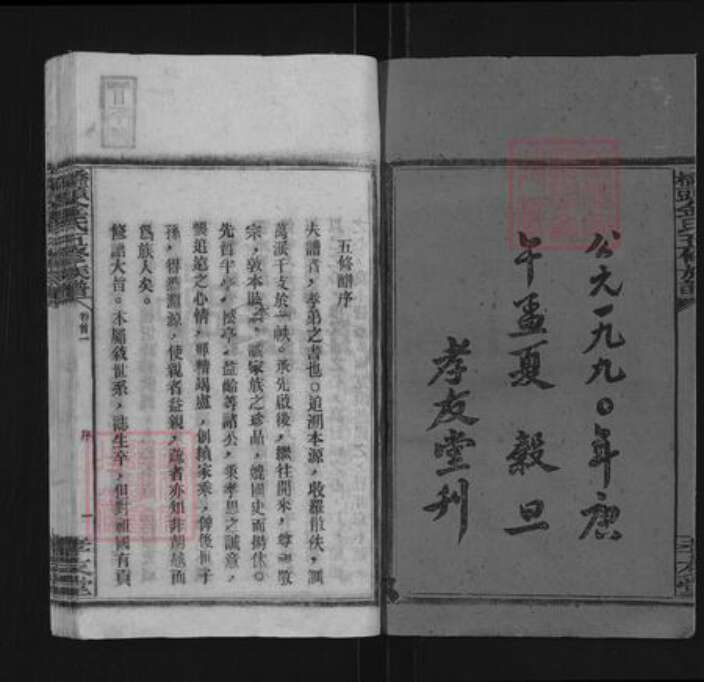 公元一九九〇年庚
午孟夏 穀旦
孝友堂刊
五修譜序
夫譜者，孝弟之書也。追溯本源，收羅散佚，溯
萬派千支於一帙。承先啟後，繼往開來，尊祖敬
宗，敦本睦族，誠家族之珍品，媲國史而揚休。
先哲平，益齡等諸公，秉孝思之誠意，
襲追遠之心情，殫精竭慮，創續家乘，俾後世子
孫，得悉淵源，使親者益親，疏者亦知非胡越而
為族人矣。
修譜大旨。本屬敘世系，誌生卒，但對祖國有貢
五修族譜
卷首一
序
一
孝友堂